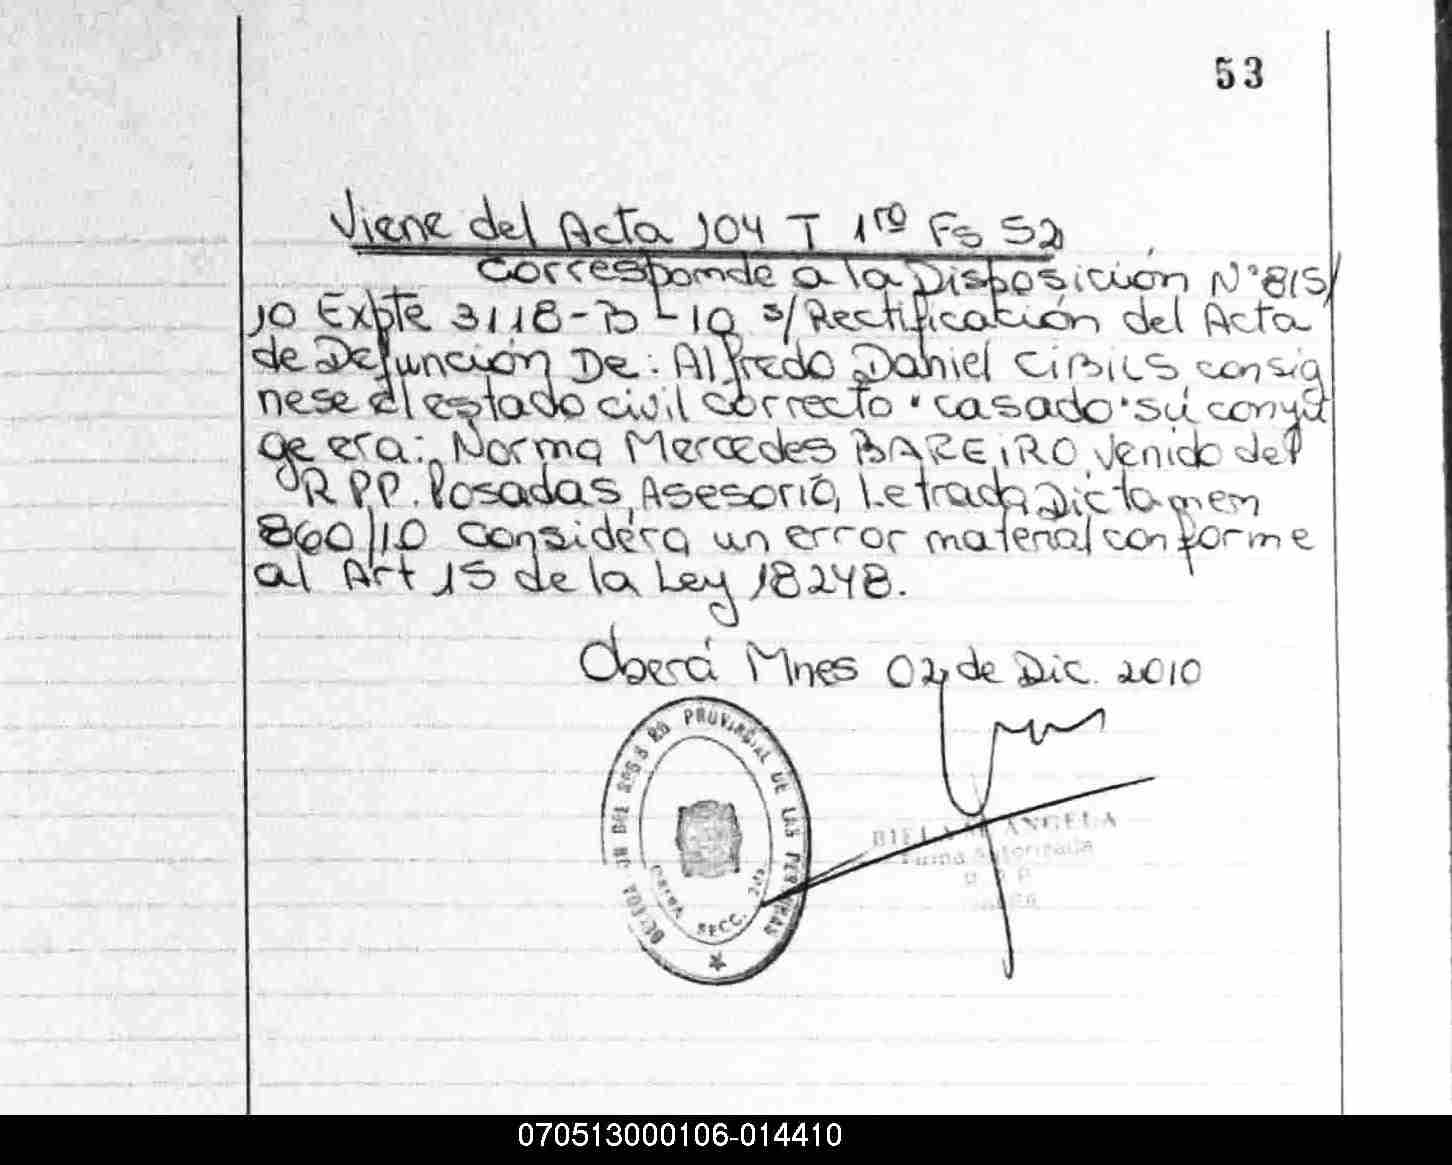 53
Viene del Acta 104 T 1ro Fs 52
Corresponde a la Disposición N°815/
10 Expte 3118-B-10 s/Rectificación del Acta
de Defunción De: Alfredo Daniel CiBiLS, consig
nese el estado civil correcto "casado" su conyu
ge era: Norma Mercedes BAREiRO, venido del
R.P.P. Posadas, Asesoria, Letrada, Dictamen
860/10 considera un error material conforme
al Art 15 de la Ley 18248.
Oberá Mnes 02 de Dic. 2010
PROVINCIAL DE LAS PERSONAS
SECC. 2da
ANGELA
Firma Autorizada
070513000106-014410